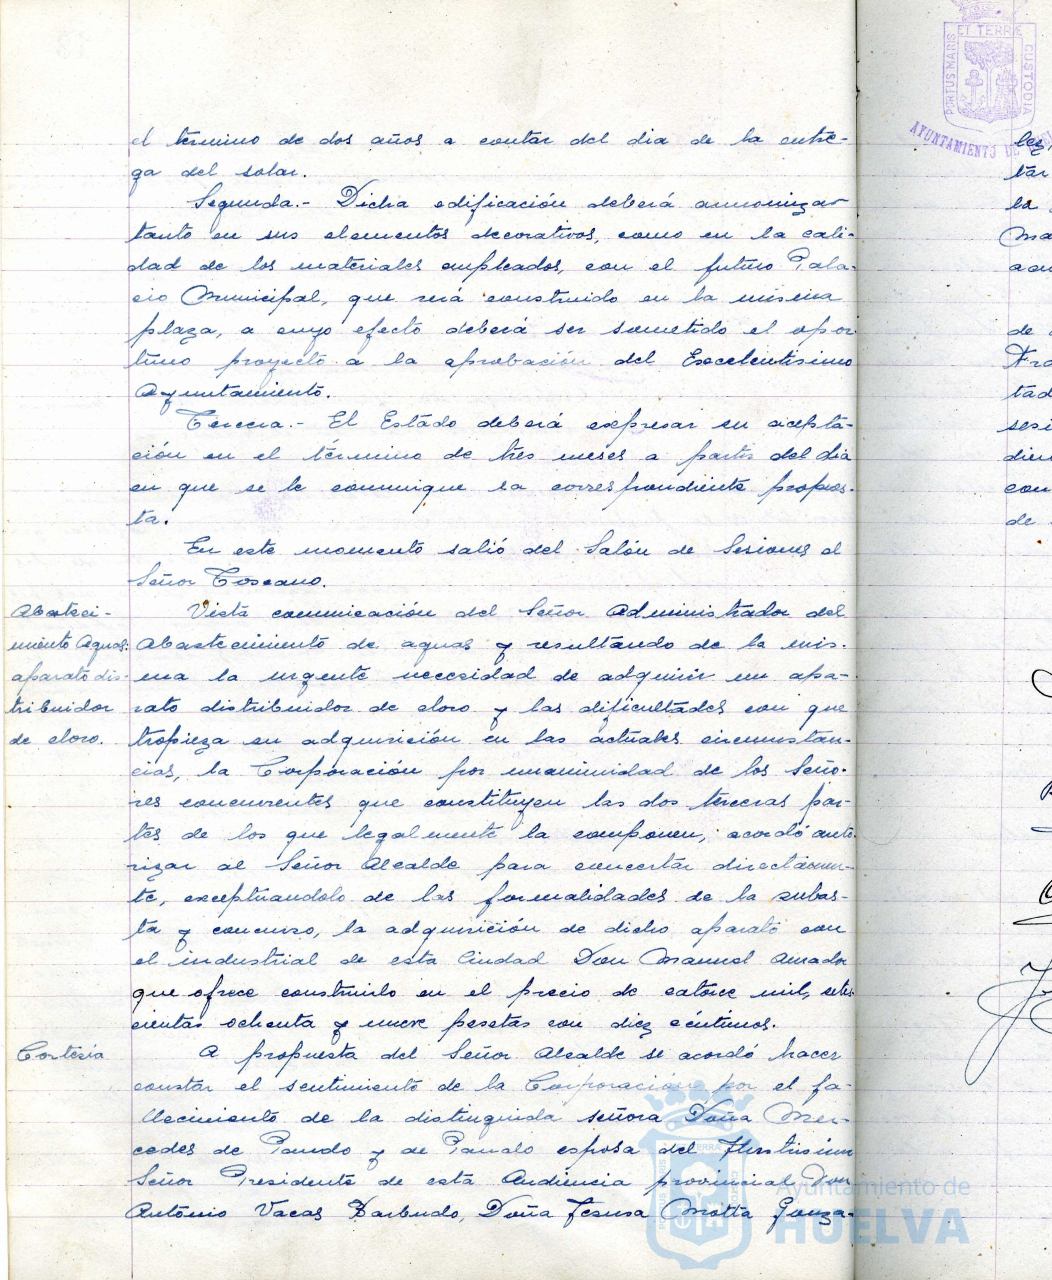 el término de dos años a contar del dia de la entre-
ga del solar.
Segunda.- Dicha edificación deberá armonizar
tanto en sus elementos decorativos, como en la cali-
dad de los materiales empleados, con el futuro Pala-
cio Municipal, que será construido en la misma
plaza, a cuyo efecto deberá ser sometido el opor-
tuno proyecto a la aprobación del Excelentísimo
Ayuntamiento.
Tercera.- El Estado deberá expresar su acepta-
ción en el término de tres meses a partir del dia
en que se le comunique la correspondiente propues-
ta.
En este momento salió del Salón de Sesiones el
Señor Toscano.
Abasteci-
miento Aguas:
aparato dis-
tribuidor
de cloro.
Vista comunicación del Señor Administrador del
Abastecimiento de aguas y resultando de la mis-
ma la urgente necesidad de adquirir un apa-
rato distribuidor de cloro y las dificultades con que
tropieza su adquisición en las actuales circunstan-
cias, la Corporación por unanimidad de los Seño-
res concurrentes que constituyen las dos terceras par-
tes de los que legalmente la componen, acordó auto-
rizar al Señor Alcalde para concertar directamen-
te, exceptuandolo de las formalidades de la subas-
ta y concurso, la adquisición de dicho aparato con
el industrial de esta Ciudad Don Manuel Amador
que ofrece construirlo en el precio de catorce mil, sete-
cientas ochenta y nueve pesetas con diez céntimos.
Cortesía
A propuesta del Señor Alcalde se acordó hacer
constar el sentimiento de la Corporación por el fa-
llecimiento de la distinguida señora Doña Mer-
cedes de Pando y de Pando esposa del Ilustrísimo
Señor Presidente de esta Audiencia provincial Don
António Vacas Barbudo, Doña Jesusa Motta Gonza-
PORTUS MARIS ET TERRE CUSTODIA
AYUNTAMIENTO DE
lez,
tar
la
Ma
de
Fra
tad
sesi
dien
con
de
Ayuntamiento de
HUELVA